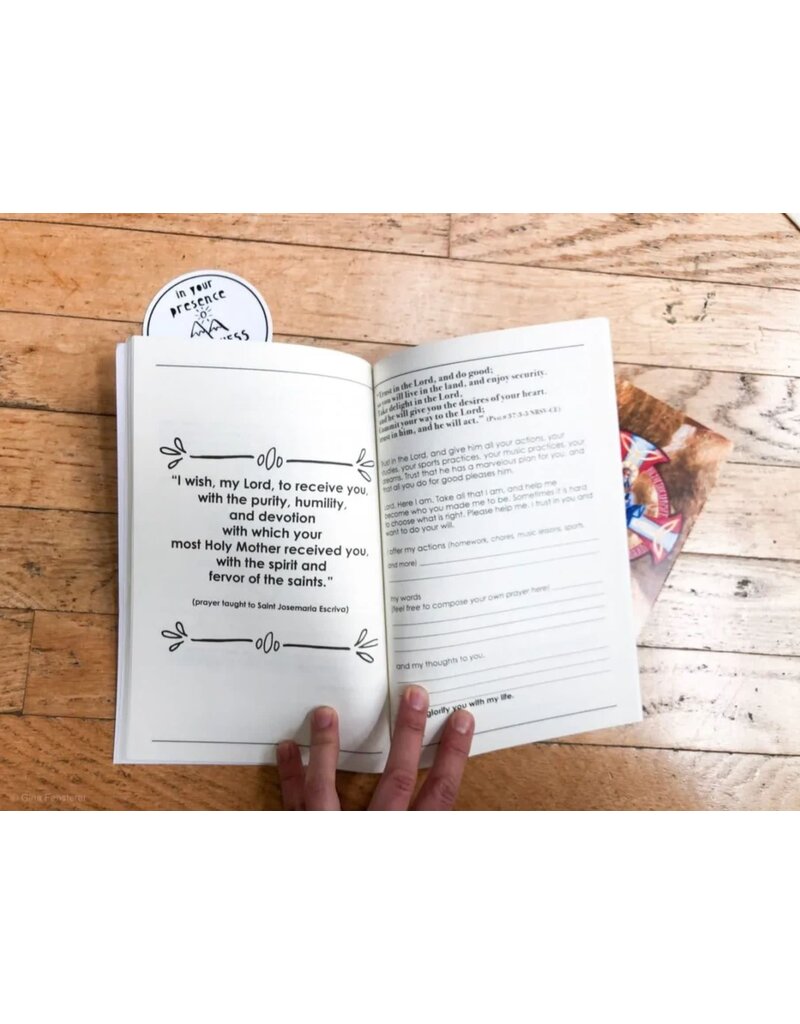 in your
presence
“I wish, my Lord, to receive you,
with the purity, humility,
and devotion
with which your
most Holy Mother received you,
with the spirit and
fervor of the saints.”
(prayer taught to Saint Josemaria Escriva)
“Trust in the Lord, and do good;
so you will live in the land, and enjoy security.
Take delight in the Lord,
and he will give you the desires of your heart.
Commit your way to the Lord;
trust in him, and he will act.”
Trust in the Lord, and give him all your actions, your
studies, your sports practices, your music practices, your
dreams. Trust that he has a marvelous plan for you, and
that all you do for good pleases him.
Lord, Here I am. Take all that I am, and help me
become who you made me to be. Sometimes it is hard
to choose what is right. Please help me. I trust in you and
want to do your will.
I offer my actions (homework, chores, music lessons, sports,
and more)
my words
(feel free to compose your own prayer here)
and my thoughts to you.
glorify you with my life.
© Gina Fensterer